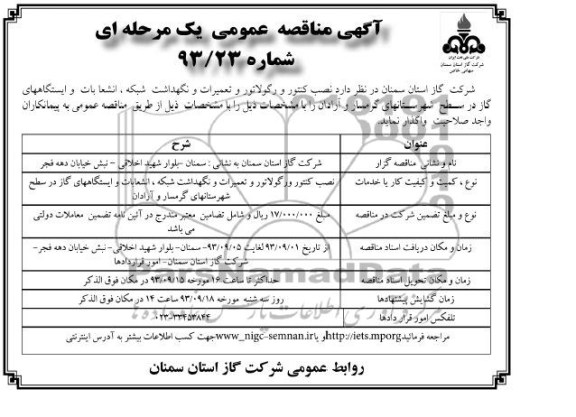 آگهی مناقصه عمومی یک مرحله ای
شماره ۹۳/۲۳
شرکت ملی گاز ایران
شرکت گاز استان سمنان
سهامی خاص
شرکت گاز استان سمنان در نظر دارد نصب کنتور و رگولاتور و تعمیرات و نگهداشت شبکه ، انشعابات و ایستگاههای
گاز در سطح شهرستانهای گرمسار و آرادان را با مشخصات ذیل را با مشخصات ذیل از طریق مناقصه عمومی به پیمانکاران
واجد صلاحیت واگذار نماید.
عنوان شرح
نام و نشانی مناقصه گزار شرکت گاز استان سمنان به نشانی : سمنان -بلوار شهید اخلاقی - نبش خیابان دهه فجر
نوع ، کمیت و کیفیت کار یا خدمات نصب کنتور ورگولاتور و تعمیرات و نگهداشت شبکه ، انشعابات و ایستگاههای گاز در سطح
شهرستانهای گرمسار و آرادان
نوع و مبلغ تضمین شرکت در مناقصه مبلغ ۱۷/۰۰۰/۰۰۰ ریال و شامل تضامین معتبر مندرج در آئین نامه تضمین معاملات دولتی
می باشد
زمان و مکان دریافت اسناد مناقصه از تاریخ ۹۳/۰۹/۰۱ لغایت ۹۳/۰۹/۰۵- سمنان- بلوار شهید اخلاقی- نبش خیابان دهه فجر-
شرکت گاز استان سمنان- امور قراردادها
زمان و مکان تحویل اسناد مناقصه حداکثر تا ساعت ۱۶ مورخه ۹۳/۰۹/۱۵ در مکان فوق الذکر
زمان گشایش پیشنهادها روز سه شنبه مورخه ۹۳/۰۹/۱۸ ساعت ۱۴ در مکان فوق الذکر
تلفکس امور قرار دادها ۰۲۳-۳۳۴۵۴۸۴۴
مراجعه فرمائید http://iets.mporg و یا www_nigc-semnan.ir جهت کسب اطلاعات بیشتر به آدرس اینترنتی
روابط عمومی شرکت گاز استان سمنان
ParsNamadData